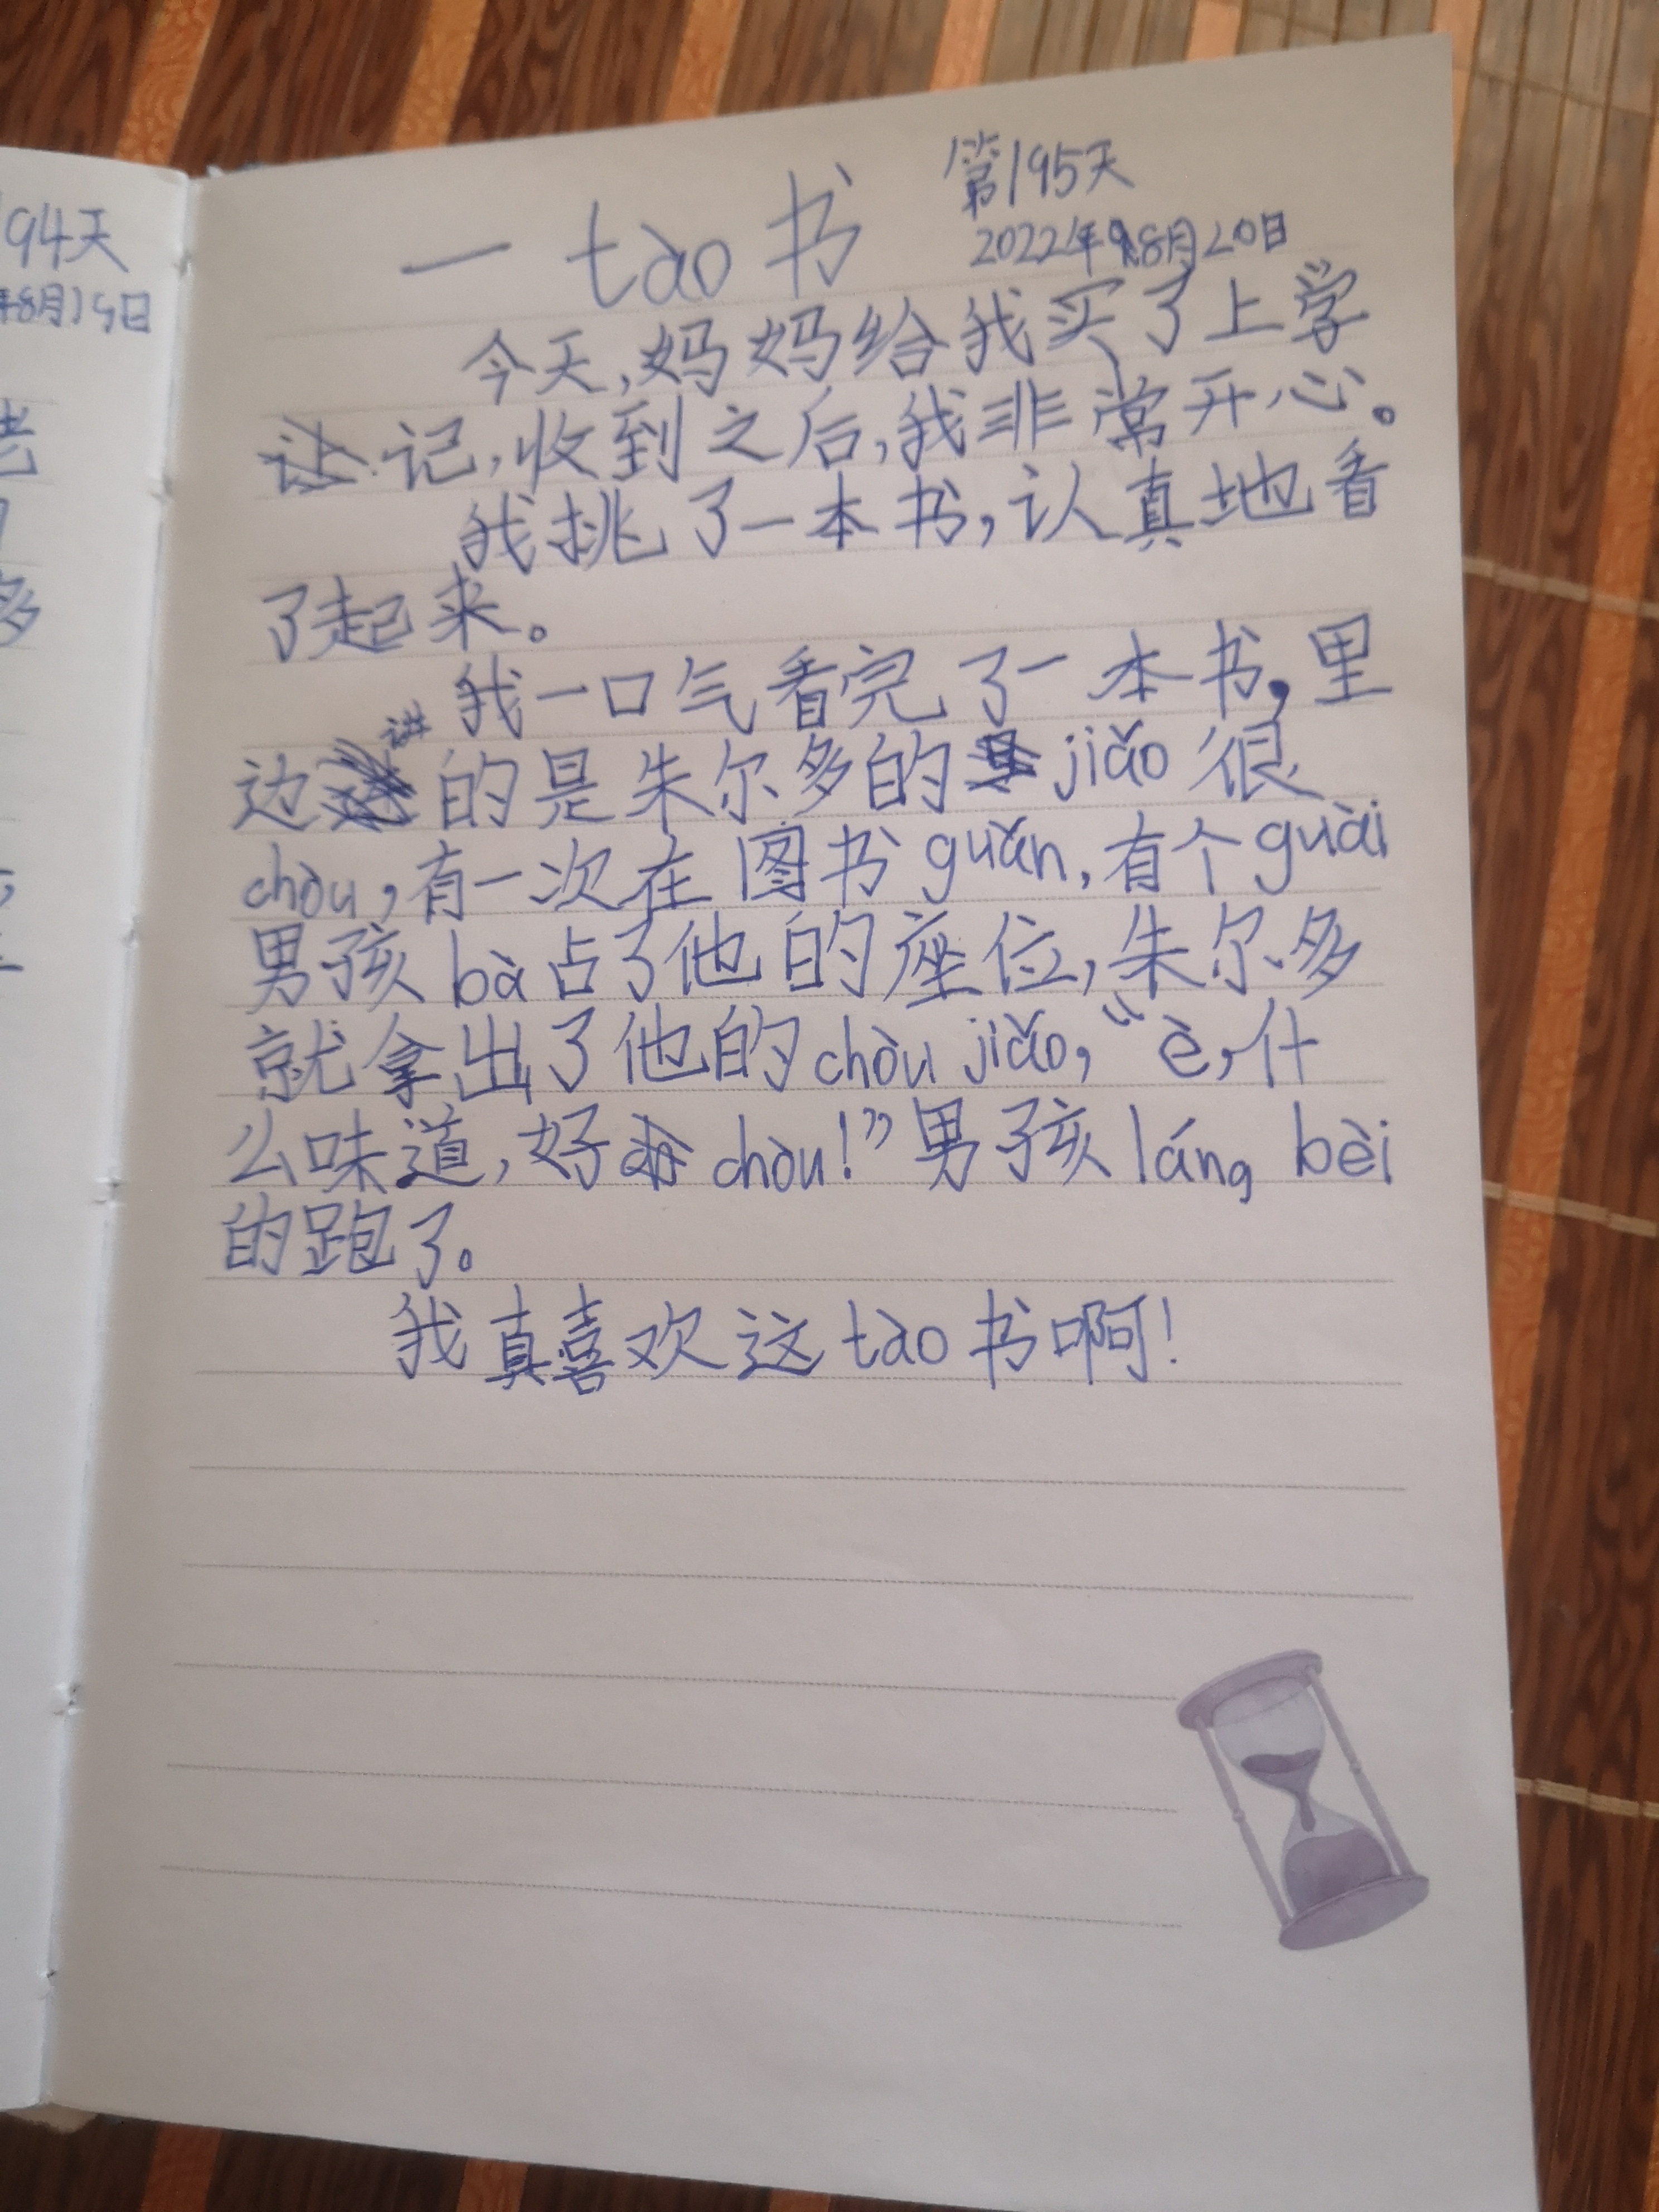 94天
年8月19日
多
第195天
一 tào 书
2022年8月20日
今天,妈妈给我买了上学
记,收到之后,我非常开心。
我挑了一本书,认真地看
了起来。
我一口气看完了一本书,里
边讲的是朱尔多的jiǎo很
chòu,有一次在图书guǎn,有个guài
男孩bà占了他的座位,朱尔多
就拿出了他的chòu jiǎo,“è,什
么味道,好chòu!”男孩láng bèi
的跑了。
我真喜欢这tào书啊!